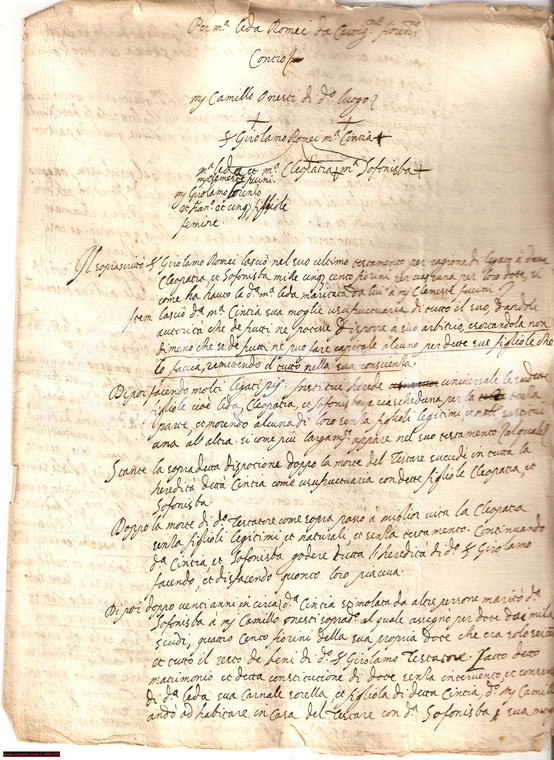 Per m.ª Leda Romei da
Contro
mᵣ Camillo Onesti di d.º luogo
Girolamo Romei m.ª Cintia
m.ª Leda et m.ª Cleopatra m.ª Sofonisba
mᵣ Clemente fucini
mᵣ Girolamo
et cinq figliole
femine
Il soprascritto Girolamo Romei lasciò nel suo ultimo testamento per ragione di legato a dette
Cleopatra, et Sofonisba mille cinq cento fiorini per ciascuna per loro dote, si
come ha hauto la d.ª m.ª Leda maritata da lui a mᵣ Clemente fucini
Item lasciò d.ª m.ª Cintia sua moglie usufructuaria di tutto il suo, dandoli
autorità che de frutti ne potesse disporre a suo arbitrio, esortandola non
dimeno che se de frutti ne può fare capitale alcuno per dette sue figliole che
lo faccia, remettendo il tutto nella sua conscienza.
Di poi facendo molti legati pij herede universale le sudette
figliole cioè Leda, Cleopatra, et Sofonisba, e ciascheduna per la terza
parte, et morendo alcuna di loro senza figlioli legitimi et
una all altra. si come più largam.te appare nel suo testamento
Stante la sopradetta dispositione doppo la morte del Testatore in tutta la
heredità detta Cintia come usufructuaria con dette figliole Cleopatra, et
Sofonisba.
Doppo la morte di d.º Testatore come sopra passò a miglior vita la Cleopatra
senza figlioli legitimi, et naturali, et senza testamento. Continuando
d.ª Cintia, et Sofonisba godere tutta l'heredità di d.º Girolamo
facendo, et disfacendo quanto loro piaceva.
Di poi doppo venti anni in circa d.ª Cintia stimolata da altre persone maritò d.ª
Sofonisba a mᵣ Camillo onesti soprad.º al quale assegnò per dote mila
scudi, quattro cento fiorini della sua propria dote che era solo
et tutto il resto de beni di d.º Girolamo Testatore. fatto detto
matrimonio et detta constitutione di dote senza intervento, et consenso
di d.ª Leda sua Carnale sorella, et figliola di detta Cintia, d.º mᵣ Camillo
andò ad habitare in Casa del Testatore con d.ª Sofonisba sua